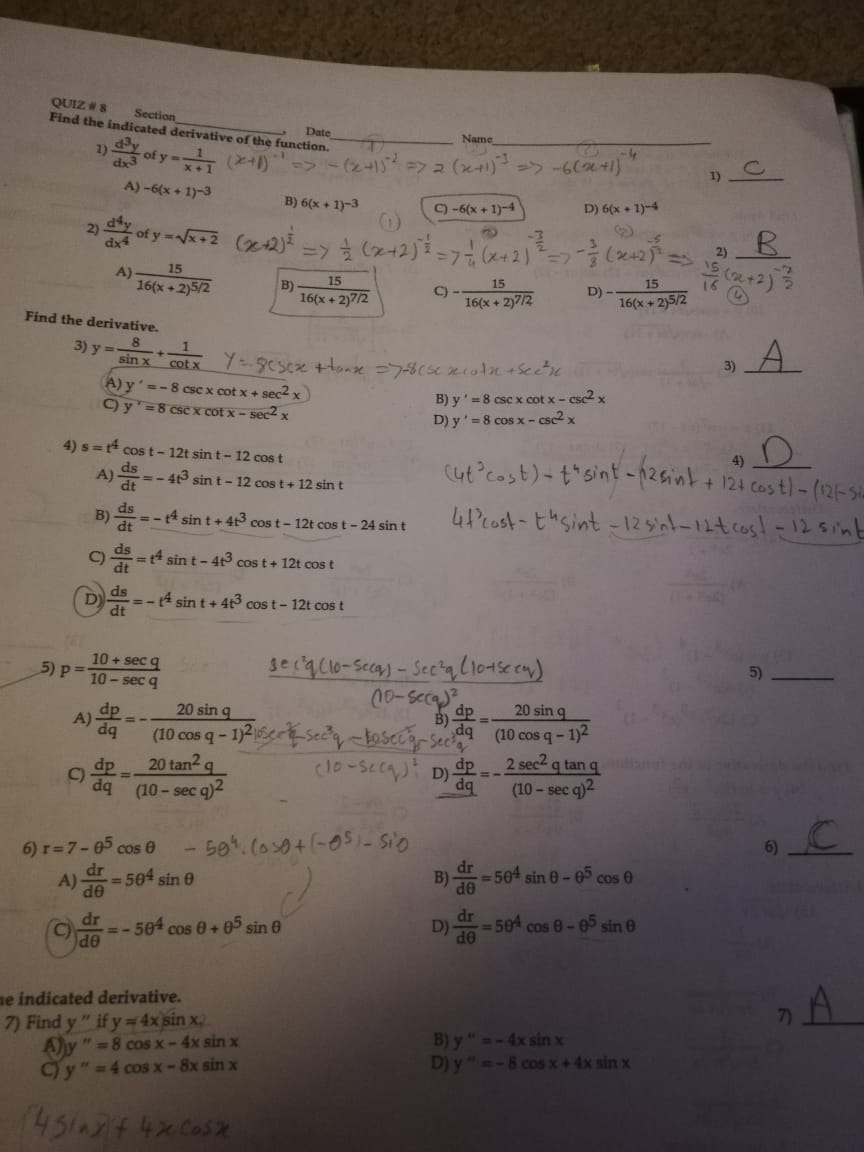 QUIZ # 8 Section Date Name
Find the indicated derivative of the function.
1) d³y/dx³ of y = 1/(x + 1) (x+1)⁻¹ => -(x+1)⁻² => 2(x+1)⁻³ => -6(x+1)⁻⁴ 1) C
A) -6(x + 1)-3 B) 6(x + 1)-3 C) -6(x + 1)-4 D) 6(x + 1)-4
2) d⁴y/dx⁴ of y = √(x + 2) (x+2)^(1/2) => 1/2 (x+2)^(-1/2) => 1/4 (x+2)^(-3/2) => -3/8 (x+2)^(-5/2) => 15/16 (x+2)^(-7/2) 2) B
A) - 15/(16(x + 2)5/2) B) - 15/(16(x + 2)7/2) C) - 15/(16(x + 2)7/2) D) - 15/(16(x + 2)5/2)
Find the derivative.
3) y = 8/sin x + 1/cot x Y = 8cscx + tanx => -8cscx cotx + sec²x 3) A
A) y ' = - 8 csc x cot x + sec² x B) y ' = 8 csc x cot x - csc² x
C) y ' = 8 csc x cot x - sec² x D) y ' = 8 cos x - csc² x
4) s = t⁴ cos t - 12t sin t - 12 cos t 4) D
A) ds/dt = - 4t³ sin t - 12 cos t + 12 sin t (4t³cost) - t⁴sint - (12sint + 12t cost) - (12(-si
B) ds/dt = - t⁴ sin t + 4t³ cos t - 12t cos t - 24 sin t 4t³cost - t⁴sint - 12sint - 12tcost - 12sint
C) ds/dt = t⁴ sin t - 4t³ cos t + 12t cos t
D) ds/dt = - t⁴ sin t + 4t³ cos t - 12t cos t
5) p = (10 + sec q)/(10 - sec q) (sec²q(10-secq) - sec²q(10+secq))/(10-secq)² 5)
A) dp/dq = - 20 sin q/(10 cos q - 1)² B) dp/dq = 20 sin q/(10 cos q - 1)²
(10-secq)²
C) dp/dq = 20 tan² q/(10 - sec q)² D) dp/dq = - 2 sec² q tan q/(10 - sec q)²
6) r = 7 - θ⁵ cos θ - 5θ⁴.Cosθ + (-θ⁵) - Sinθ 6) C
A) dr/dθ = 5θ⁴ sin θ B) dr/dθ = 5θ⁴ sin θ - θ⁵ cos θ
C) dr/dθ = - 5θ⁴ cos θ + θ⁵ sin θ D) dr/dθ = 5θ⁴ cos θ - θ⁵ sin θ
he indicated derivative.
7) Find y " if y = 4x sin x. 7) A
A) y " = 8 cos x - 4x sin x B) y " = - 4x sin x
C) y " = 4 cos x - 8x sin x D) y " = - 8 cos x + 4x sin x
4sinx + 4xcosx